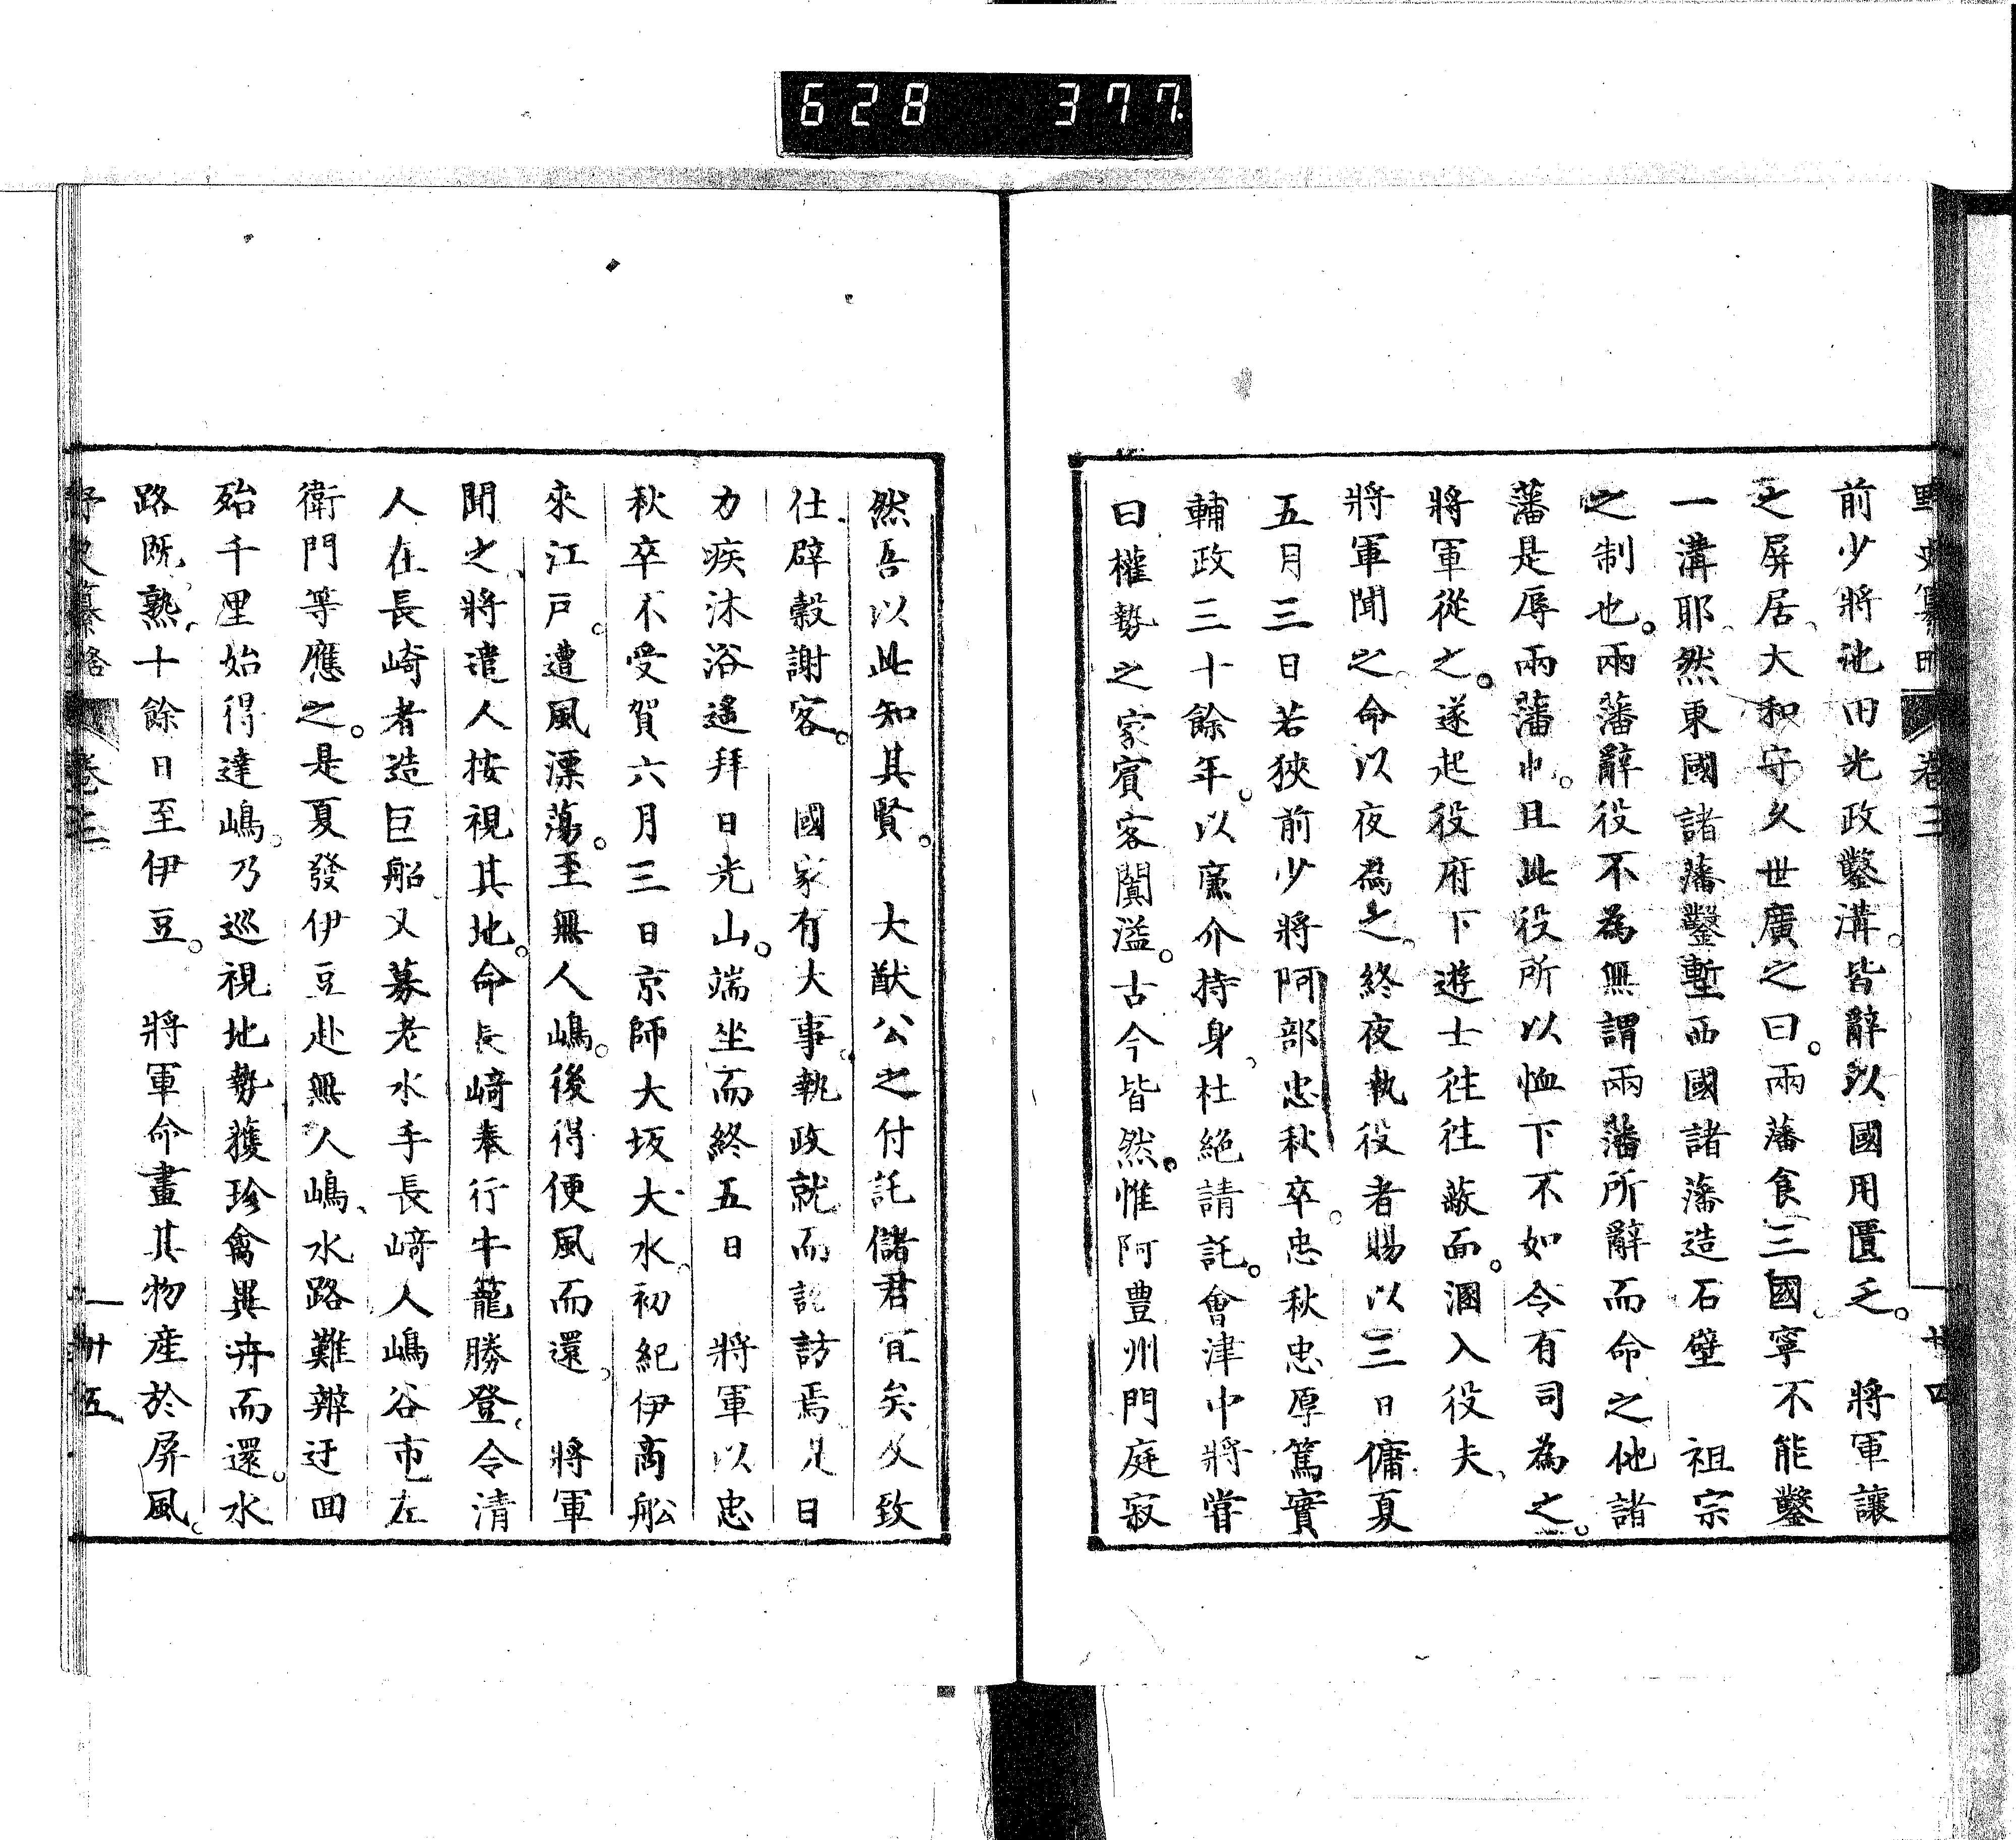 628 377
野史纂略 卷三 廿四
前少將池田光政鑿溝。皆辭以國用匱乏。 將軍讓
之屏居、大和守久世廣之曰。兩藩食三國。寧不能鑿
一溝耶、然東國諸藩鑿塹西國諸藩造石壁 祖宗
之制也。兩藩辭役不為無謂兩藩所辭而命之他諸
藩是辱兩藩也。且此役所以恤下不如令有司為之。
將軍從之。遂起役府下遊士往往蔽面。溷入役夫、
將軍聞之、命以夜為之、終夜執役者賜以三日傭夏
五月三日若狹前少將阿部忠秋卒。忠秋忠厚篤實
輔政三十餘年。以廉介持身、杜絕請託。會津中將嘗
曰權勢之家賓客闐溢。古今皆然。惟阿豊州門庭寂
然吾以此知其賢。 大猷公之付託儲君宜矣久致
仕、辟穀謝客。 國家有大事。執政就而諮訪焉是日
力疾沐浴遙拜日光山。端坐而終五日 將軍以忠
秋卒不受賀六月三日京師大坂大水。初紀伊商舩
來江戸。遭風漂蕩。至無人嶋。後得便風而還、 將軍
聞之、將遣人按視其地。命長崎奉行牛籠勝登、令清
人在長崎者造巨船。又募老水手長崎人嶋谷市左
衛門等應之。是夏發伊豆赴無人嶋、水路難辨迂回
殆千里始得達嶋。乃巡視地勢獲珍禽異卉而還。水
路既熟、十餘日至伊豆。 將軍命畫其物產於屏風。
野史纂略 卷三 廿五